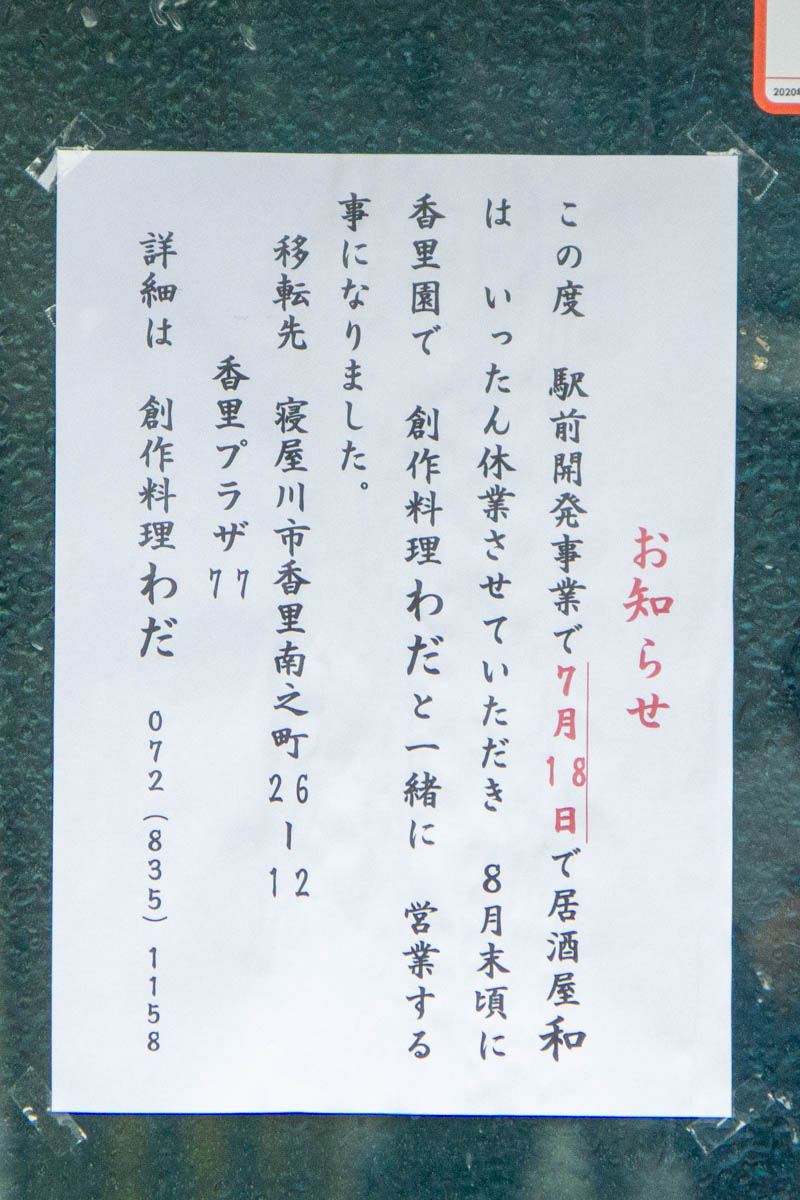 お知らせ
この度　駅前開発事業で7月18日で居酒屋和
は　いったん休業させていただき　8月末頃に
香里園で　創作料理わだと一緒に　営業する
事になりました。
移転先　寝屋川市香里南之町26ー12
香里プラザ77
詳細は　創作料理わだ　072（835）1158